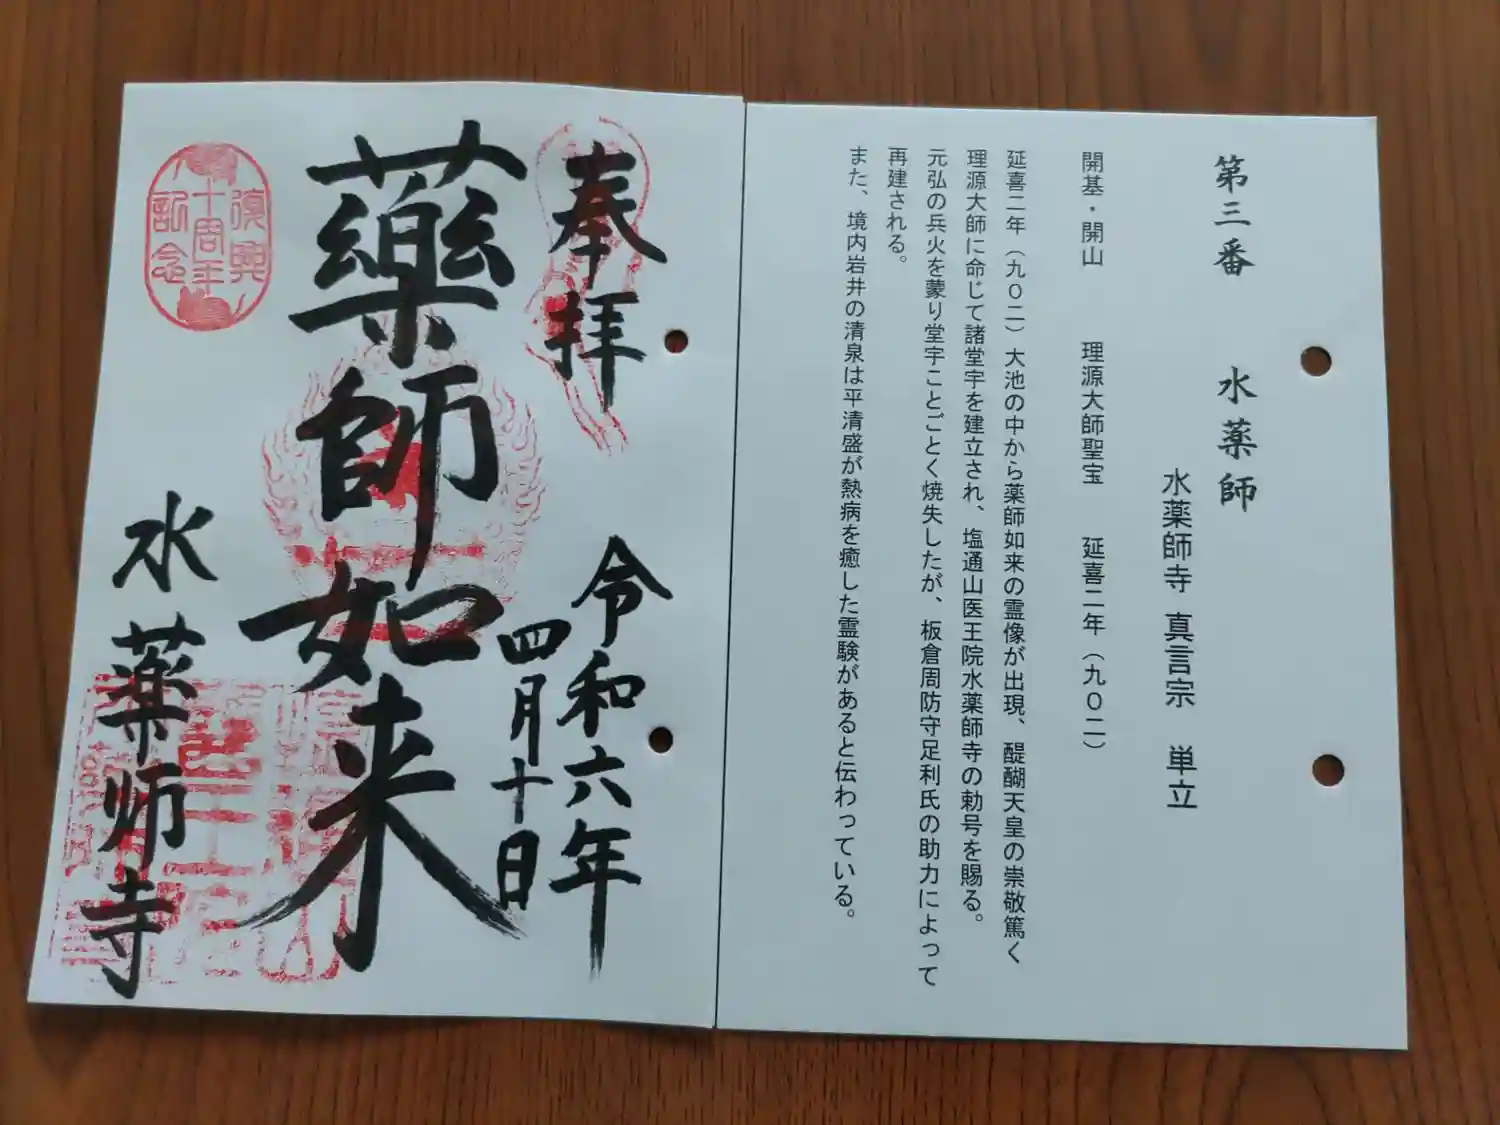 第三番　水薬師
水薬師寺 真言宗　単立
開基・開山　理源大師聖宝　延喜二年（九〇二）
延喜二年（九〇二）大池の中から薬師如来の霊像が出現、醍醐天皇の崇敬篤く
理源大師に命じて諸堂宇を建立され、塩通山医王院水薬師寺の勅号を賜る。
元弘の兵火を蒙り堂宇ことごとく焼失したが、板倉周防守足利氏の助力によって
再建される。
また、境内岩井の清泉は平清盛が熱病を癒した霊験があると伝わっている。
奉拝
令和六年
四月十日
藥師如来
水薬师寺
復興
十周年
記念